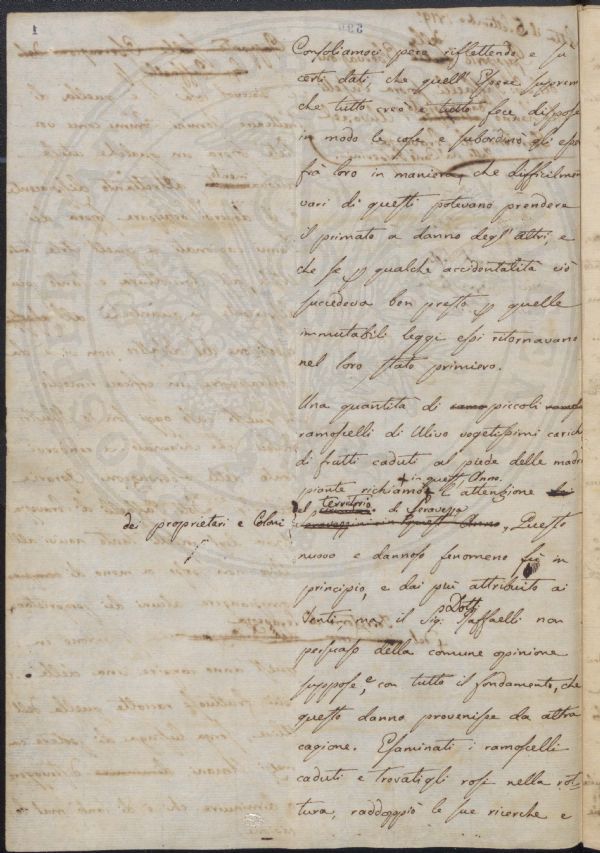 1
Consoliamoci però riflettendo e su
certi dati, che quell' Essere suprem
che tutto creò e tutto fece dispose
in modo le cose e subordinò gli esse
frà loro in maniera, che difficilmen
vari di questi potevano prendere
il primato a danno degl' altri, e
che se p qualche accidentalità ciò
succedeva ben presto p quelle
immutabili leggi essi ritornavano
nel loro stato primiero.
Una quantità di piccoli
ramoscelli di Ulivo vegetissimi carich
di frutti caduti al piede delle madri
+ in quest' Anno.
piante richiamò l'attenzione
dei proprietari e Coloni
el territorio di Seravezza
in quest' Anno, Questo
nuovo e dannoso fenomeno fù in
principio, e dai più attribuito ai
Venti, ma il Sig. Dott. Raffaelli non
persuaso della comune opinione
suppose, e con tutto il fondamento, che
questo danno provenisse da altra
cagione. Esaminati i ramoscelli
caduti e trovatigli rosi nella rot-
tura, raddoppiò le sue ricerche e